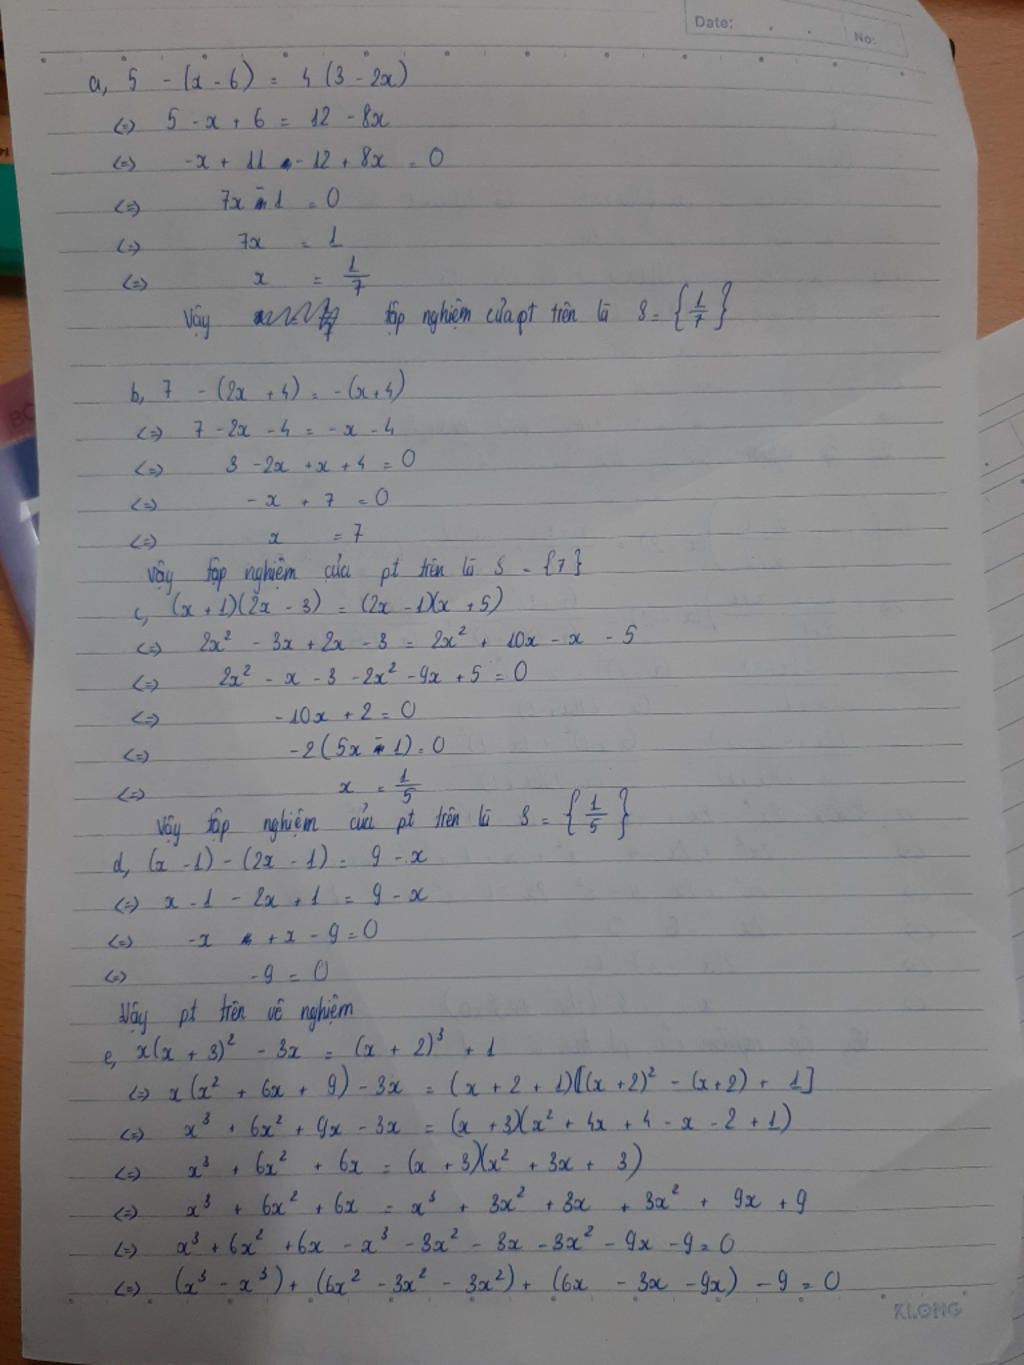 Date: . .
No:
a, 5 - (x - 6) = 4 (3 - 2x)
<=> 5 - x + 6 = 12 - 8x
<=> -x + 11 - 12 + 8x = 0
<=> 7x - 1 = 0
<=> 7x = 1
<=> x = 1/7
Vậy tập nghiệm của pt trên là S = {1/7}
b, 7 - (2x + 4) = -(x+4)
<=> 7 - 2x - 4 = -x - 4
<=> 3 - 2x + x + 4 = 0
<=> -x + 7 = 0
<=> x = 7
Vậy tập nghiệm của pt trên là S = {7}
c, (x + 1)(2x - 3) = (2x - 1)(x + 5)
<=> 2x² - 3x + 2x - 3 = 2x² + 10x - x - 5
<=> 2x² - x - 3 - 2x² - 9x + 5 = 0
<=> -10x + 2 = 0
<=> -2(5x - 1) = 0
<=> x = 1/5
Vậy tập nghiệm của pt trên là S = {1/5}
d, (x - 1) - (2x - 1) = 9 - x
<=> x - 1 - 2x + 1 = 9 - x
<=> -x + x - 9 = 0
<=> -9 = 0
Vậy pt trên vô nghiệm
e, x(x + 3)² - 3x = (x + 2)³ + 1
<=> x(x² + 6x + 9) - 3x = (x + 2 + 1)[(x+2)² - (x+2) + 1]
<=> x³ + 6x² + 9x - 3x = (x + 3)(x² + 4x + 4 - x - 2 + 1)
<=> x³ + 6x² + 6x = (x + 3)(x² + 3x + 3)
<=> x³ + 6x² + 6x = x³ + 3x² + 3x + 3x² + 9x + 9
<=> x³ + 6x² + 6x - x³ - 3x² - 3x - 3x² - 9x - 9 = 0
<=> (x³ - x³) + (6x² - 3x² - 3x²) + (6x - 3x - 9x) - 9 = 0
KLONG